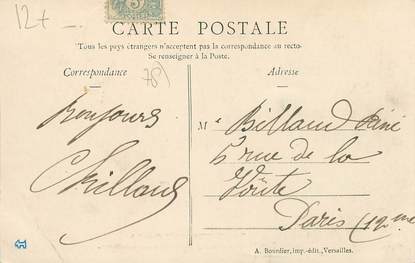 12+
CARTE POSTALE
Tous les pays étrangers n'acceptent pas la correspondance au recto.
Se renseigner à la Poste.
Correspondance
Adresse
78)
bonjours
M
Billaud
5 rue de la
Voûte
Paris (12me
A. Bourdier, imp.-édit., Versailles.